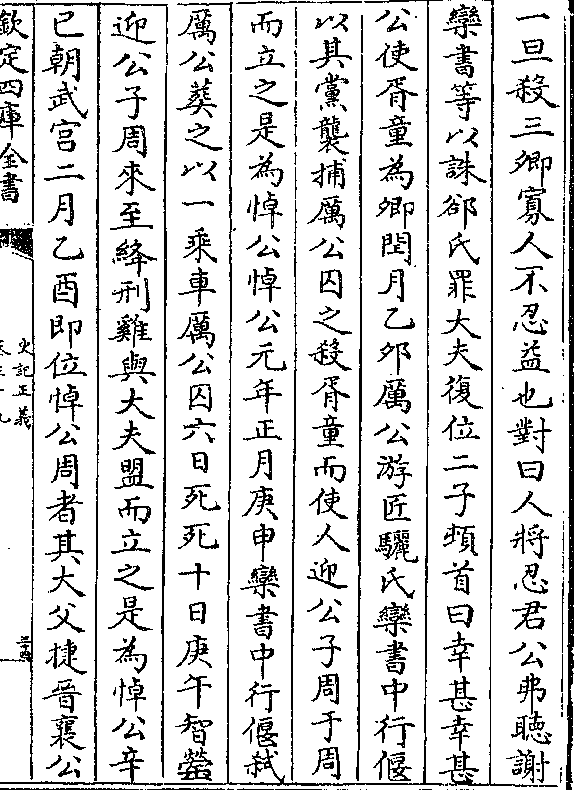 一旦殺三卿寡人不忍益也對曰人將忍君公弗聽謝
欒書等以誅郤氏罪大夫復位二子頓首曰幸甚幸甚
公使胥童為卿閏月乙卯厲公游匠驪氏欒書中行偃
以其黨襲捕厲公囚之殺胥童而使人迎公子周于周
而立之是為悼公悼公元年正月庚申欒書中行偃弒
厲公葬之以一乘車厲公囚六日死死十日庚午智罃
迎公子周來至絳刑雞與大夫盟而立之是為悼公辛
巳朝武宮二月乙酉即位悼公周者其大父捷晉襄公
欽定四庫全書
史記正義
三十四